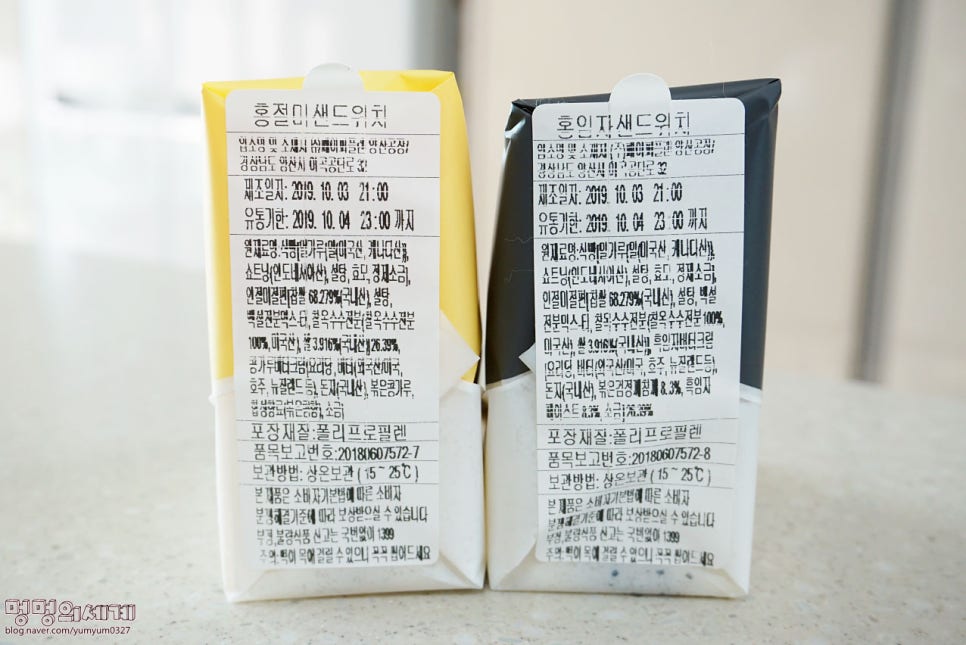 홍절미샌드위치
업소명 및 소재지 (주)페이퍼플란 양산공장/
경상남도 양산시 어곡공단로 32
제조일자: 2019. 10. 03 21:00
유통기한: 2019. 10. 04 23:00 까지
원재료명:식빵[밀가루(밀(미국산, 캐나다산)),
쇼트닝(인도네시아산), 설탕, 효모, 정제소금],
인절미절편[찹쌀 68.279%(국내산), 설탕,
백설전분믹스-Ⅱ, 찰옥수수전분(찰옥수수전분
100%, 미국산), 쌀 3.916%(국내산)]26.39%,
콩가루버터크림(
버터(외국산/미국,
호주, 뉴질랜드등), 난자(국내산), 볶은콩가루,
합성향료(볶은콩향), 소금)
포장재질:폴리프로필렌
품목보고번호:20180607572-7
보관방법: 상온보관 ( 15 ~ 25℃ )
본 제품은 소비자기본법에 따른 소비자
분쟁해결기준에 따라 보상받으실 수 있습니다
부정,불량식품 신고는 국번없이 1399
주의:떡이 목에 걸릴 수 있으니 꼭꼭 씹어드세요
홍임자샌드위치
업소명 및 소재지 (주)페이퍼플란 양산공장/
경상남도 양산시 어곡공단로 32
제조일자: 2019. 10. 03 21:00
유통기한: 2019. 10. 04 23:00 까지
원재료명:식빵[밀가루(밀(미국산, 캐나다산)),
쇼트닝(인도네시아산), 설탕, 효모, 정제소금],
인절미절편[찹쌀 68.279%(국내산), 설탕, 백설
전분믹스-Ⅱ, 찰옥수수전분(찰옥수수전분100%,
미국산), 쌀 3.916%(국내산)], 흑임자버터크림
버터(외국산/미국, 호주, 뉴질랜드등),
난자(국내산), 볶은검정깨참깨 8.3%, 흑임자
페이스트 8.3%, 소금) 26.39%
포장재질:폴리프로필렌
품목보고번호:20180607572-8
보관방법: 상온보관 ( 15 ~ 25℃ )
본 제품은 소비자기본법에 따른 소비자
분쟁해결기준에 따라 보상받으실 수 있습니다
부정,불량식품 신고는 국번없이 1399
주의:떡이 목에 걸릴 수 있으니 꼭꼭 씹어드세요
멍멍의세계
blog.naver.com/yumyum0327